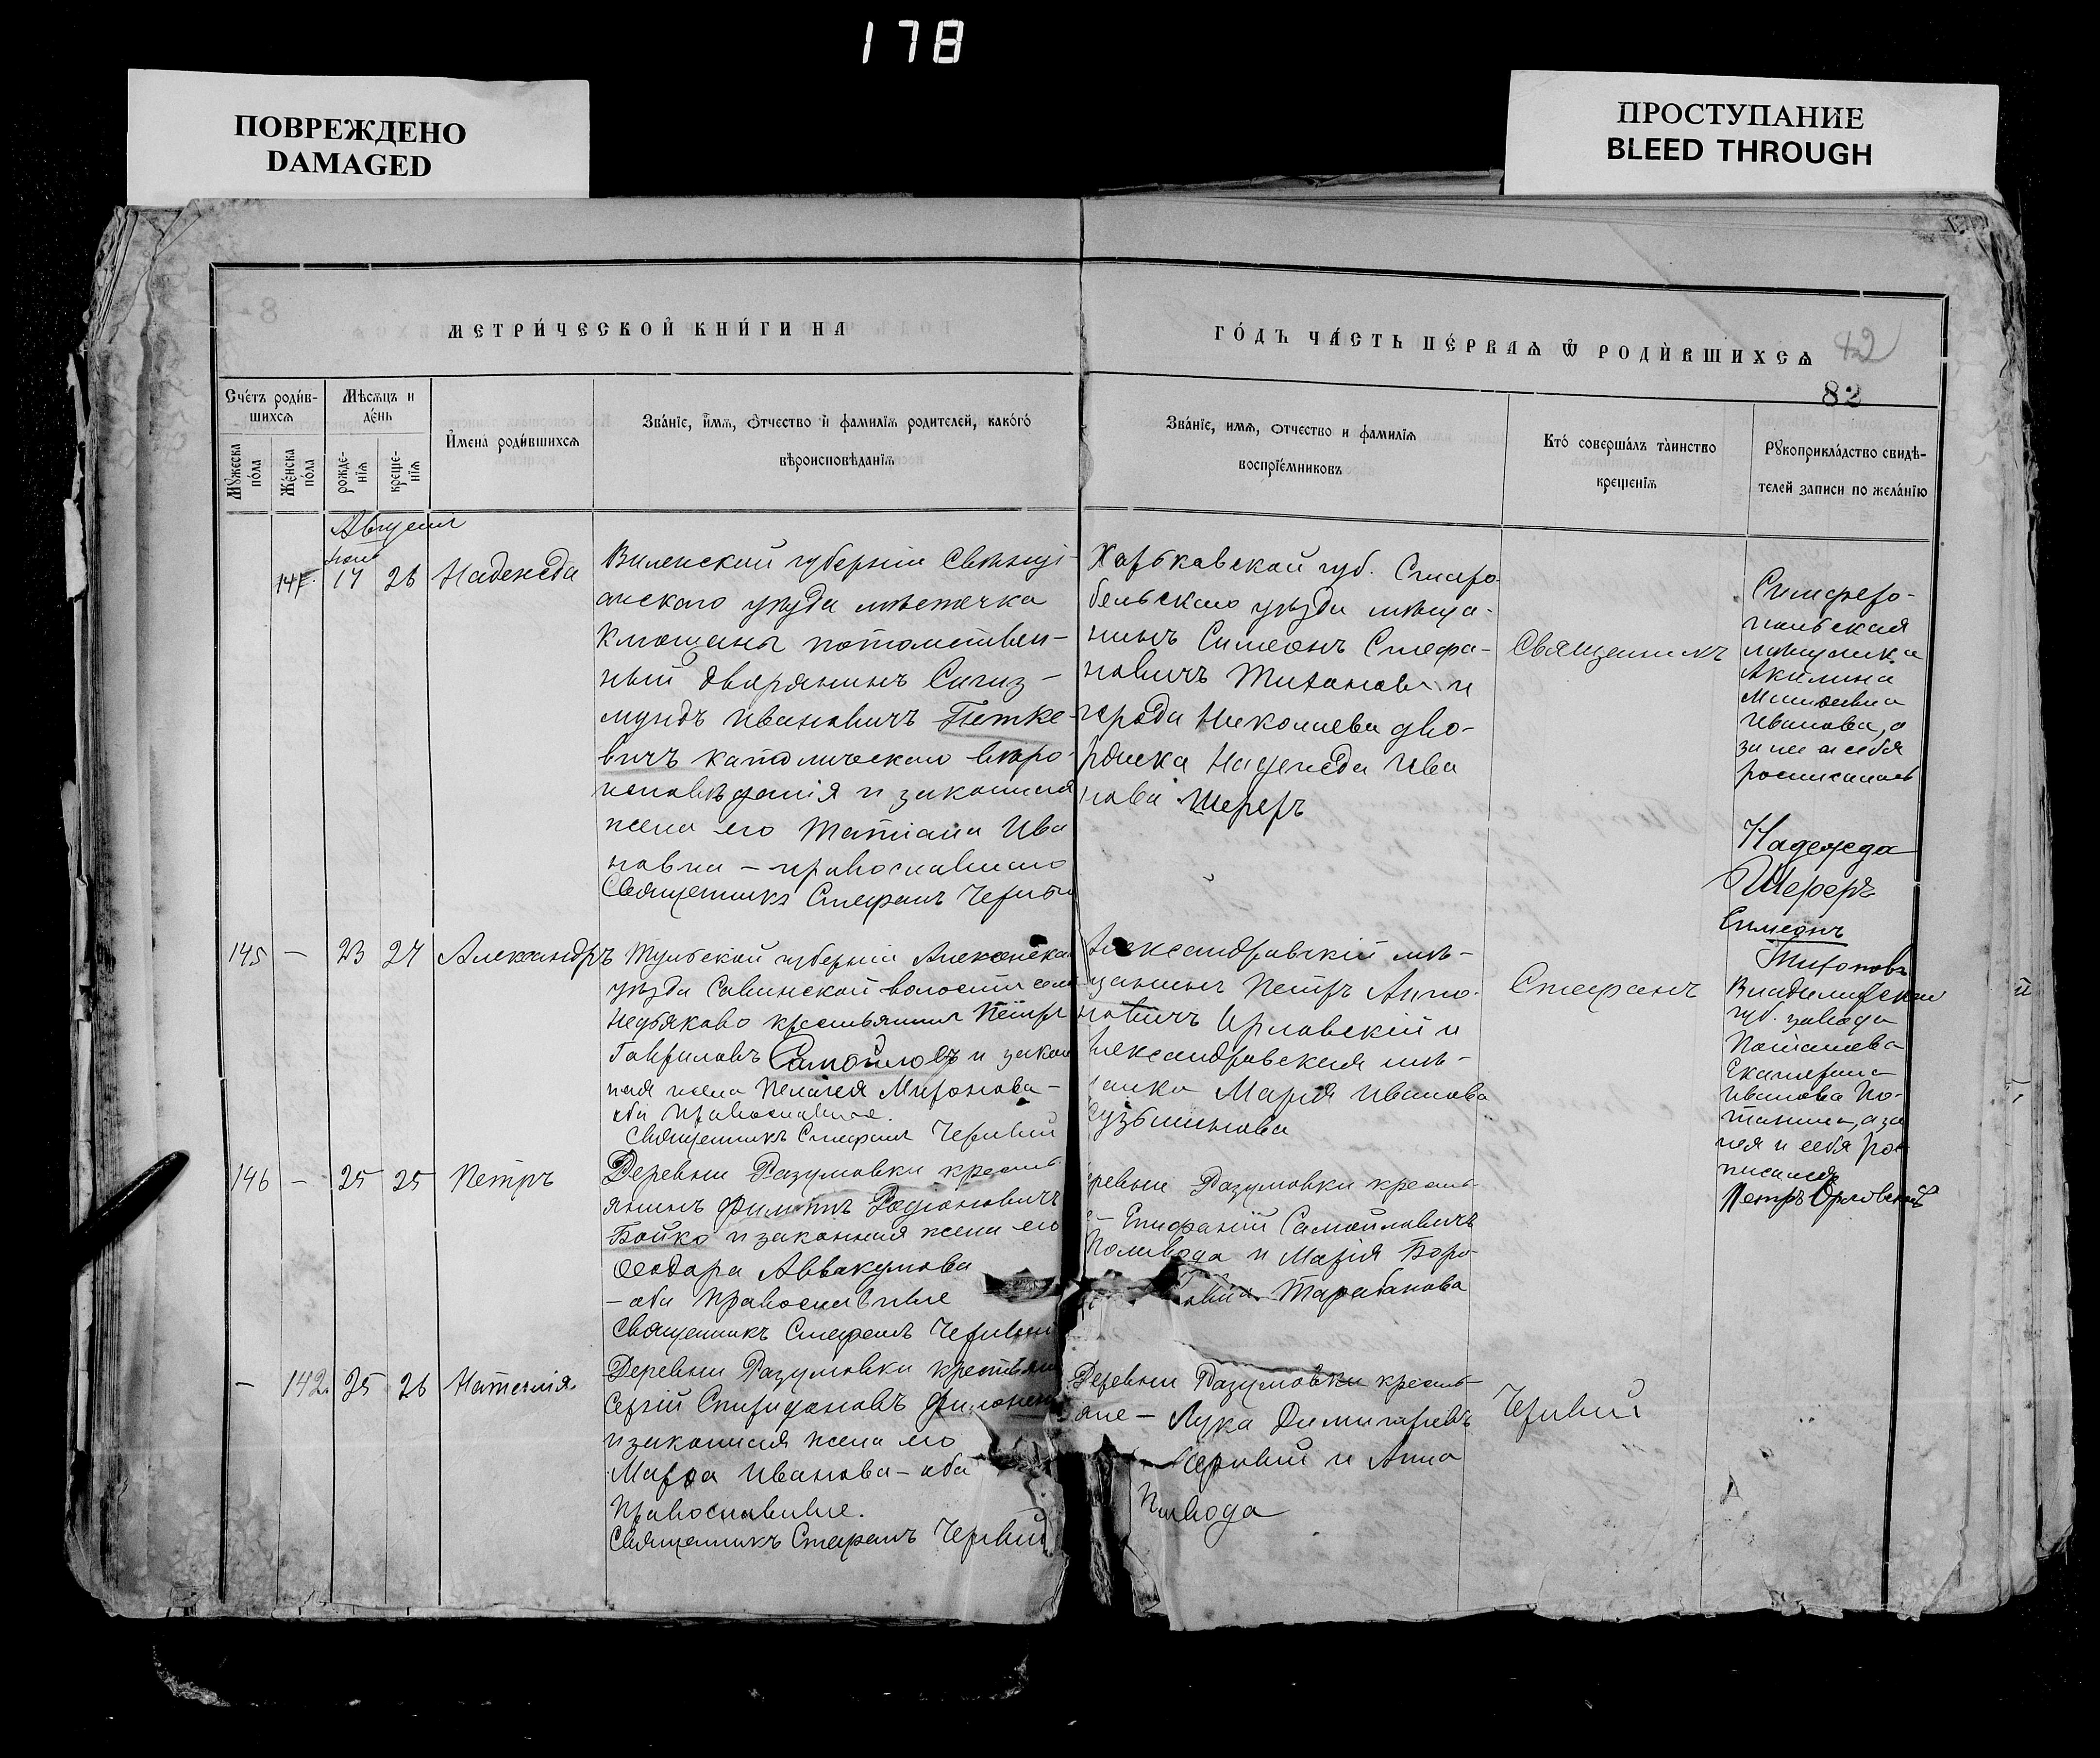 178
ПОВРЕЖДЕНО
DAMAGED
ПРОСТУПАНИЕ
BLEED THROUGH
МЕТРИ́ЧЕСКОЙ КНИ́ГИ НА
ГО́ДЪ ЧА́СТЬ ПЕ́РВАѦ Ѿ РОДИ́ВШИХСѦ
42
82
Сче́тъ роди́в-
шихсѧ
Мѣ́сѧцъ и
де́нь
Мꙋжеска по́ла
Же́нска по́ла
рожде-
нїѧ
креще-
нїѧ
И҆мена̀ роди́вшихсѧ
Зва́нїе, и҆́мѧ, ѻ҆́тчество и҆ фамилїѧ родителей, како́гѡ
вѣроисповѣ́данїѧ
Зва́нїе, имѧ, ѻтчество и фамилїѧ
воспрїе́мниковъ
Кто́ соверша́лъ та̀инство
креще́нїѧ
Рꙋкоприкла́дство свидѣ́-
телей записи по жела́нїю
Августъ
17 26 Надежда
Виленской губерніи Свѣнці-
анскаго уѣзда мѣстечка
потомствен-
ный дворянинъ Сигиз-
мундъ Ивановичъ Петке-
вичъ католическаго вѣро-
исповѣданія и законная
жена его Татіана Ива
новна – православнаго
Священникъ Стефанъ
Харькавской губ. Старо
бельскаго уѣзда мѣща-
нинъ Симеонъ Стефа-
новичъ Тихоновъ и
города Николаева дво-
рянка Надежда Ива
нова Шереръ
Священникъ
Симферо-
польская
мѣщанка
Акилина
Иванова, а
за нее и себя
росписалась
Надежда
Шереръ
Симеонъ
Тихоновъ
145 – 23 27 Александръ
Тульской губерніи Алексинска
уѣзда Савинской волости села
крестьянинъ Петръ
Гавриловъ Самойловъ и закон
ная жена Пелагея Миронова –
оба православные.
Священникъ Стефанъ Червий
Александровскій мѣ-
щанинъ Петръ Анто-
новичъ Орловскій и
Александровская мѣ-
щанка Марія Иванова
Кузьминова
Стефанъ
Владимірской
губ. завода
Екатерина
Иванова По-
а за
нея и себя рос-
писался
Петръ Орловскій
146 – 25 25 Петръ
Деревни Разумовки кресть
янинъ Филиппъ Родіоновичъ
Бойко и законная жена его
Ѳеодора Аввакумова
– оба православные
Священникъ Стефанъ Червий
Деревни Разумовки кресть-
– Епифаній Самойловичъ
Поливода и Марія
Тарабанова
– 142. 25 26 Наталія.
Деревни Разумовки крестьян
Сергій Спиридоновъ Филонен
и законная жена его
Марѳа Иванова – оба
православные.
Священникъ Стефанъ Червий
Деревни Разумовки кресть-
яне – Лука Димитріевъ
и Анна
Червий